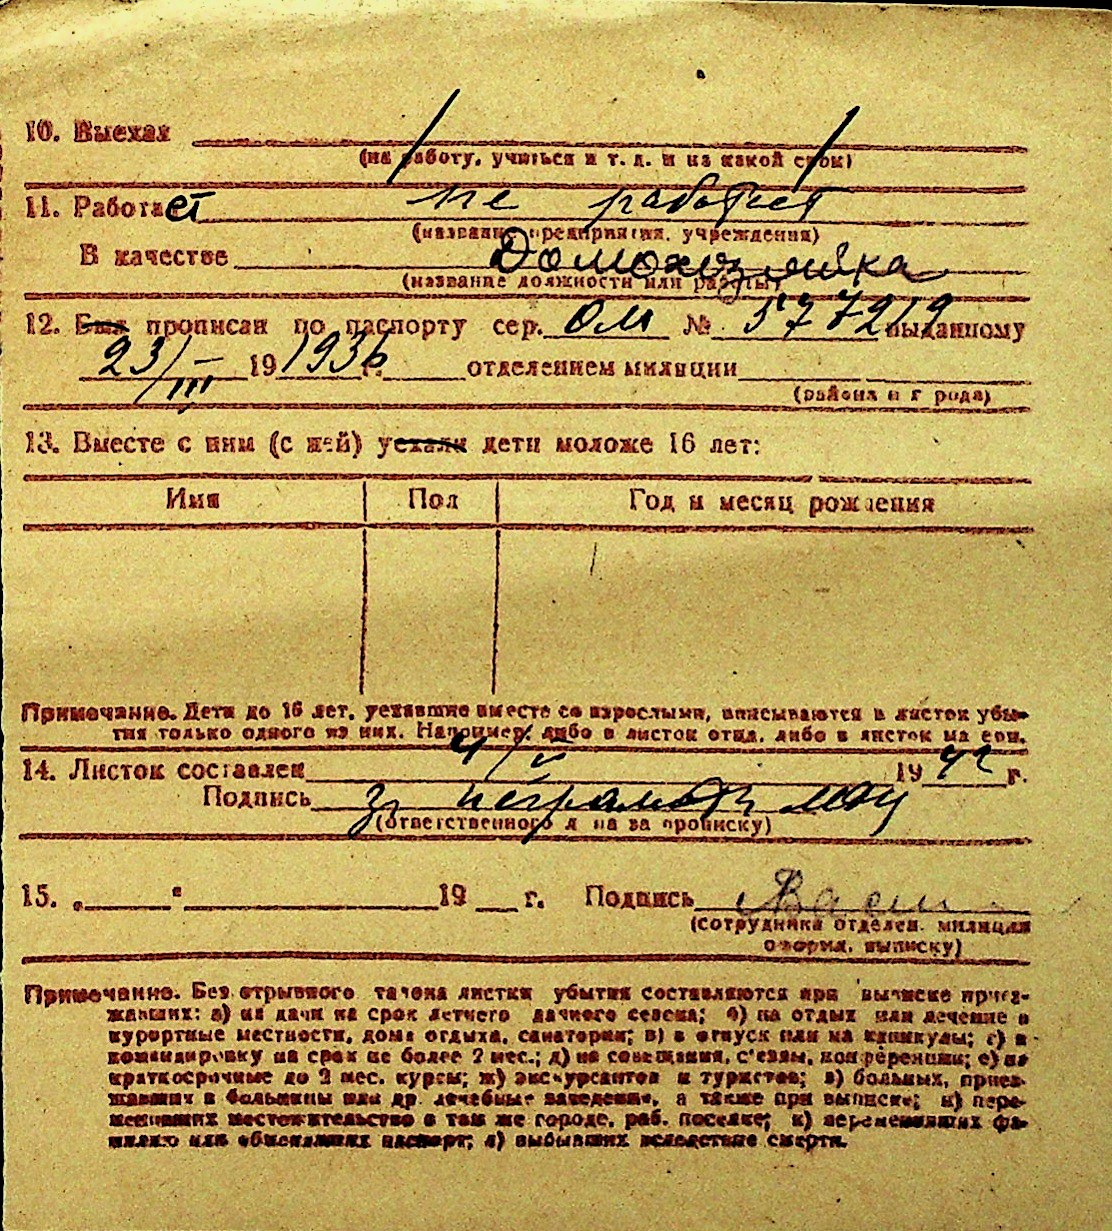 10. Выехал
(на работу, учиться и т. д. и на какой срок)
11. Работает не работает
(название предприятия, учреждения)
В качестве Домохозяйка
(название должности или работы)
12. Был прописан по паспорту сер. ОМ № 577219 выданному
23/III 19 1936 г. отделением милиции
(района и города)
13. Вместе с ним (с ней) уехали дети моложе 16 лет:
Имя Пол Год и месяц рождения
Примечание. Дети до 16 лет, уехавшие вместе со взрослыми, вписываются в листок убы-
тия только одного из них. Например: либо в листок отца, либо в листок матери.
14. Листок составлен 4/V 1942 г.
Подпись за неграмотн
(ответственного лица за прописку)
15. „ “ 19 г. Подпись Васи
(сотрудника отделен. милиции
оформл. выписку)
Примечание. Без отрывного талона листки убытия составляются при выписке приез-
жавших: а) на дачи на срок летнего дачного сезона; б) на отдых или лечение в
курортные местности, дома отдыха, санатории; в) в отпуск или на каникулы; г) в
командировку на срок не более 2 мес.; д) на совещания, съезды, конференции; е) на
краткосрочные до 2 мес. курсы; ж) экскурсантов и туристов; з) больных, приез-
жавших в больницы или др. лечебные заведения, а также при выписке; и) пере-
менивших местожительство в том же городе, раб. поселке; к) переменивших фа-
милию или обменявших паспорт; л) выбывших вследствие смерти.